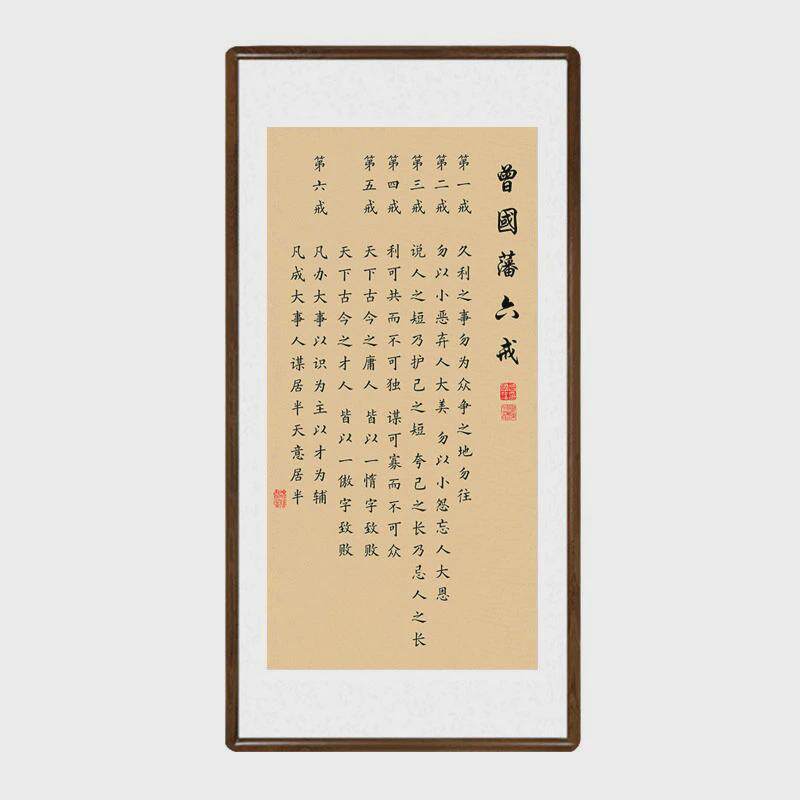 曾國藩六戒
第一戒 久利之事勿为众争之地勿往
第二戒 勿以小恶弃人大美 勿以小怨忘人大恩
第三戒 说人之短乃护己之短 夸己之长乃忌人之长
第四戒 利可共而不可独 谋可寡而不可众
第五戒 天下古今之庸人 皆以一惰字致败
天下古今之才人 皆以一傲字致败
第六戒 凡办大事以识为主以才为辅
凡成大事人谋居半天意居半